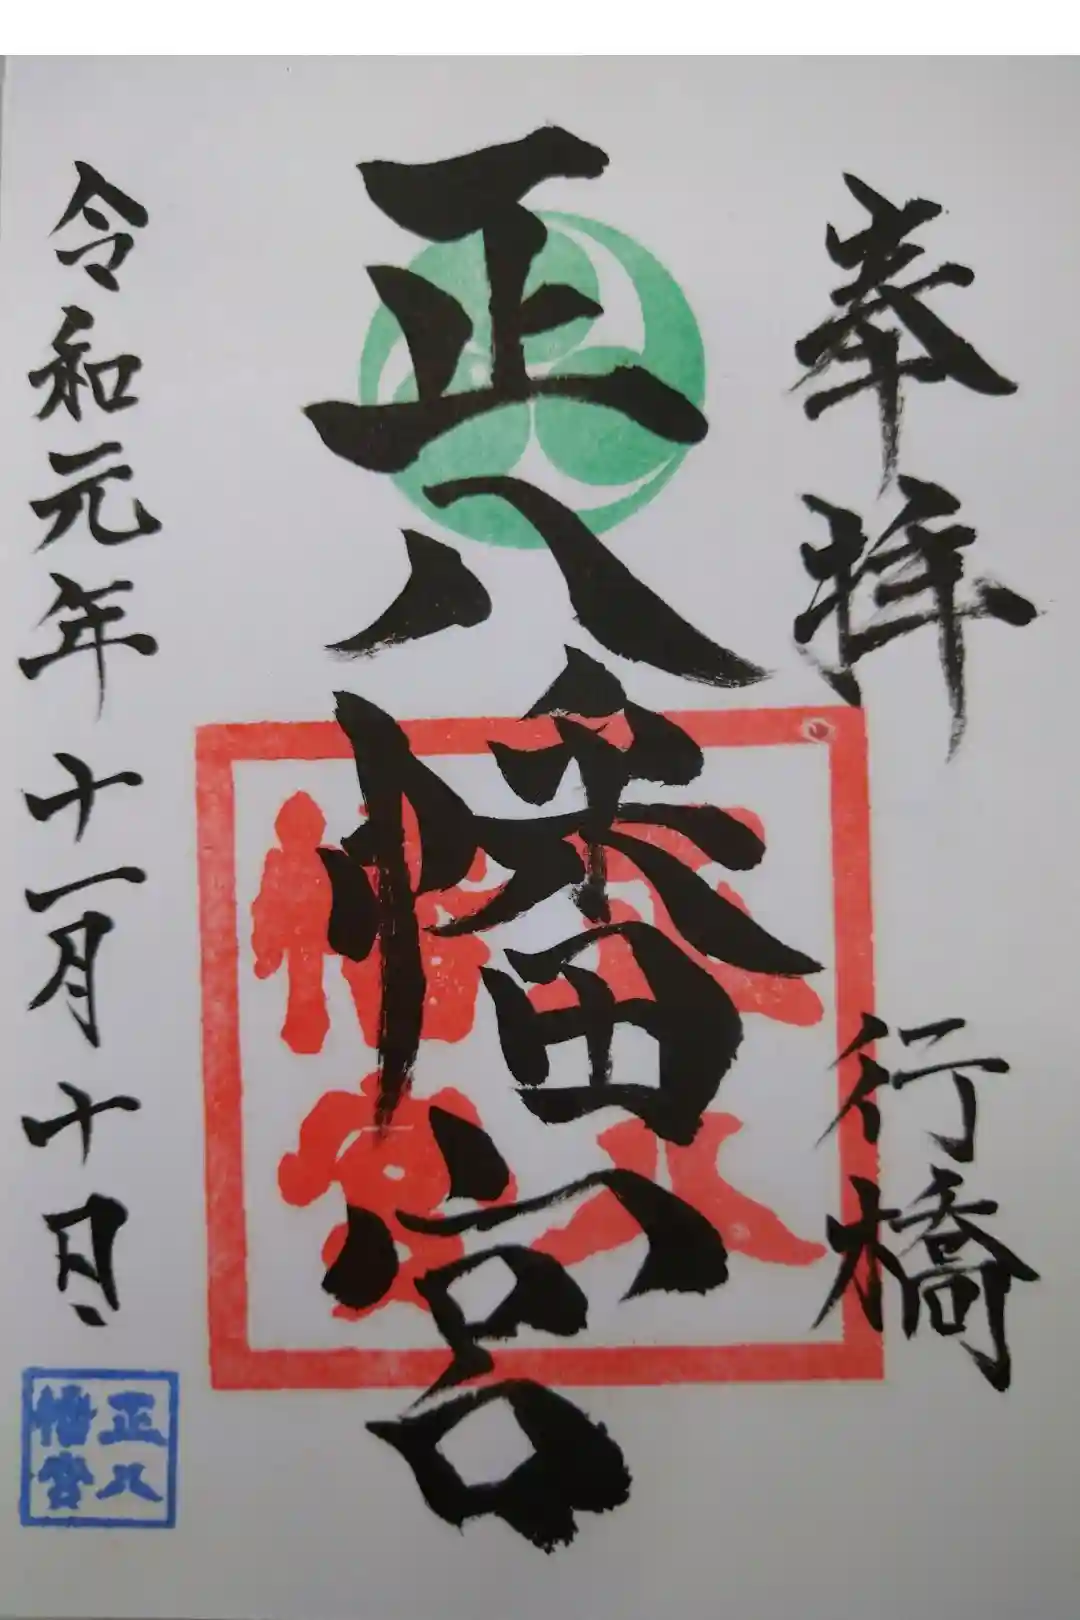 奉拝
行橋
正八幡宮
正八幡宮
令和元年十一月十日
正八
幡宮